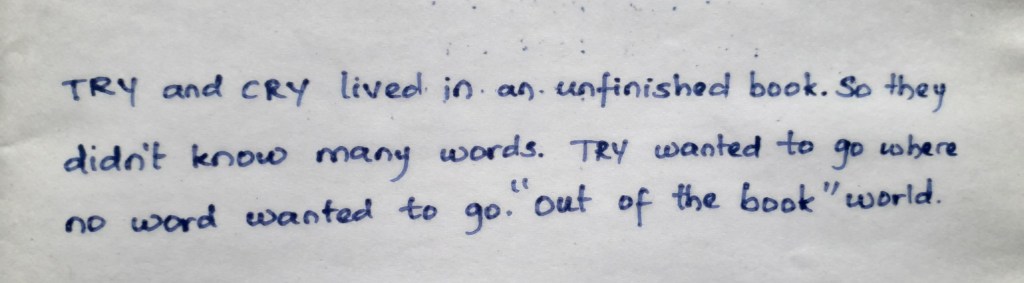 TRY and CRY lived in an unfinished book. So they
didn't know many words. TRY wanted to go where
no word wanted to go. "out of the book" world.